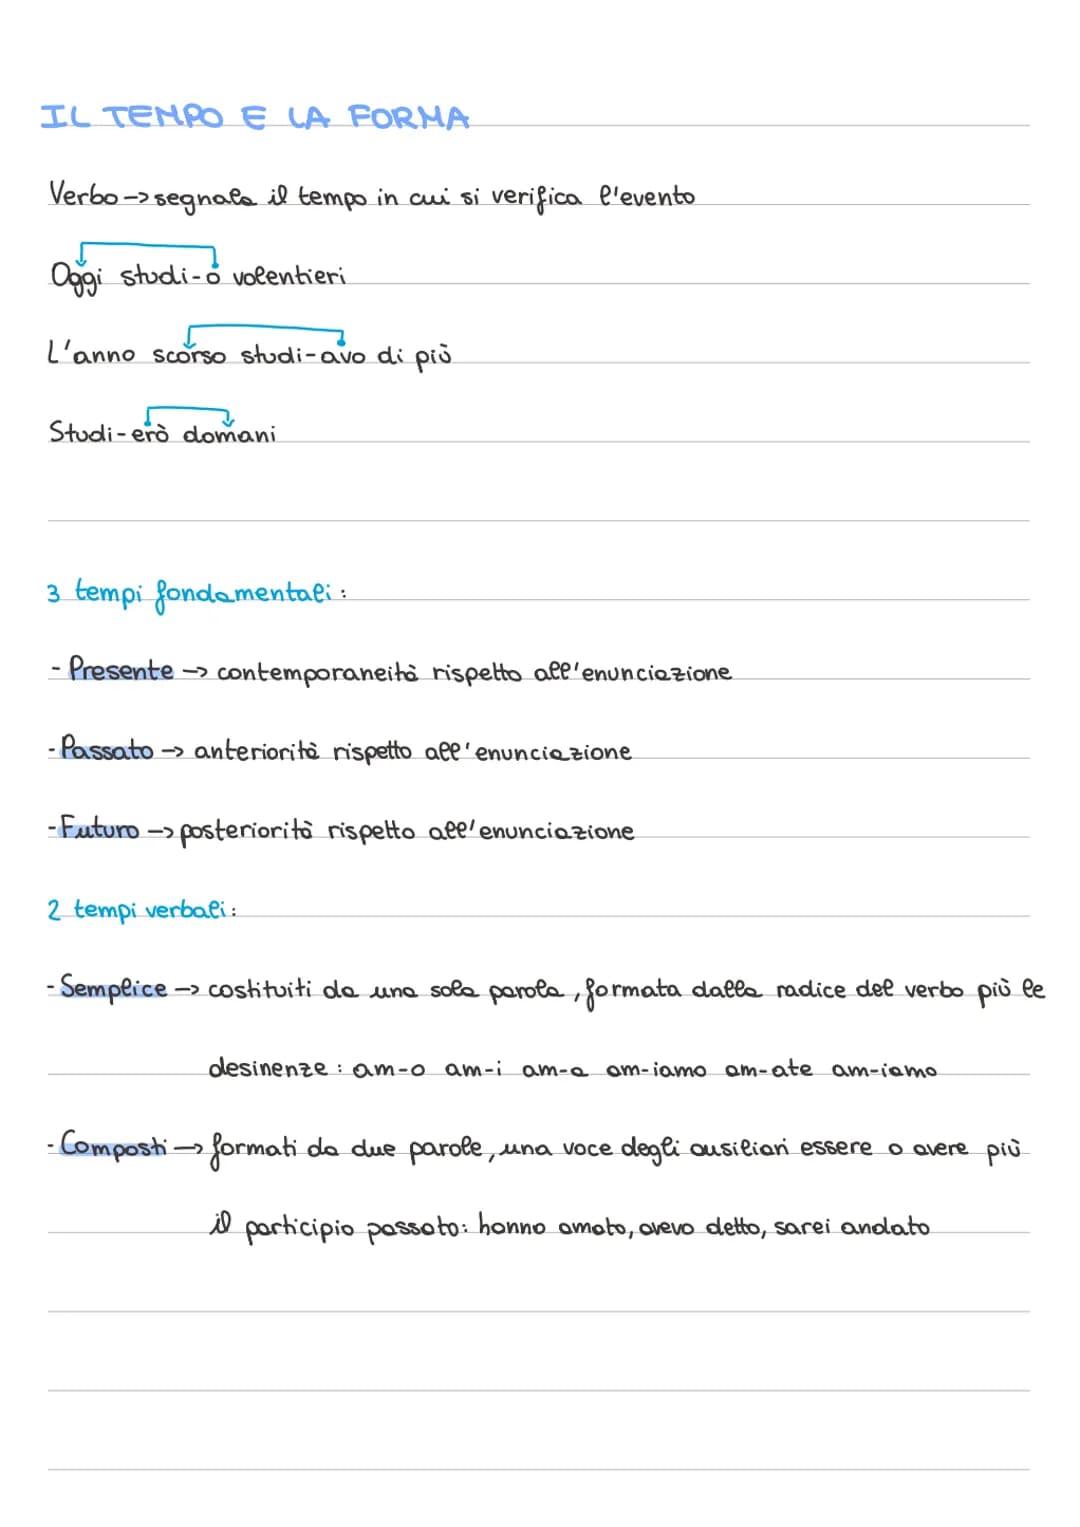 IL TEMPO E LA FORMA
Verbo -> segnala il tempo in cui si verifica l'evento
Oggi studi-o volentieri
L'anno scorso studi-avo di più
Studi-erò domani
3 tempi fondamentali:
- Presente -> contemporaneità rispetto all'enunciazione
- Passato -> anteriorità rispetto all'enunciazione
- Futuro -> posteriorità rispetto all'enunciazione
2 tempi verbali:
- Semplice -> costituiti da una sola parola, formata dalla radice del verbo più le
desinenze: am-o am-i am-a am-iamo am-ate am-iamo
- Composti -> formati da due parole, una voce degli ausiliari essere o avere più
il participio passato: hanno amato, avevo detto, sarei andato